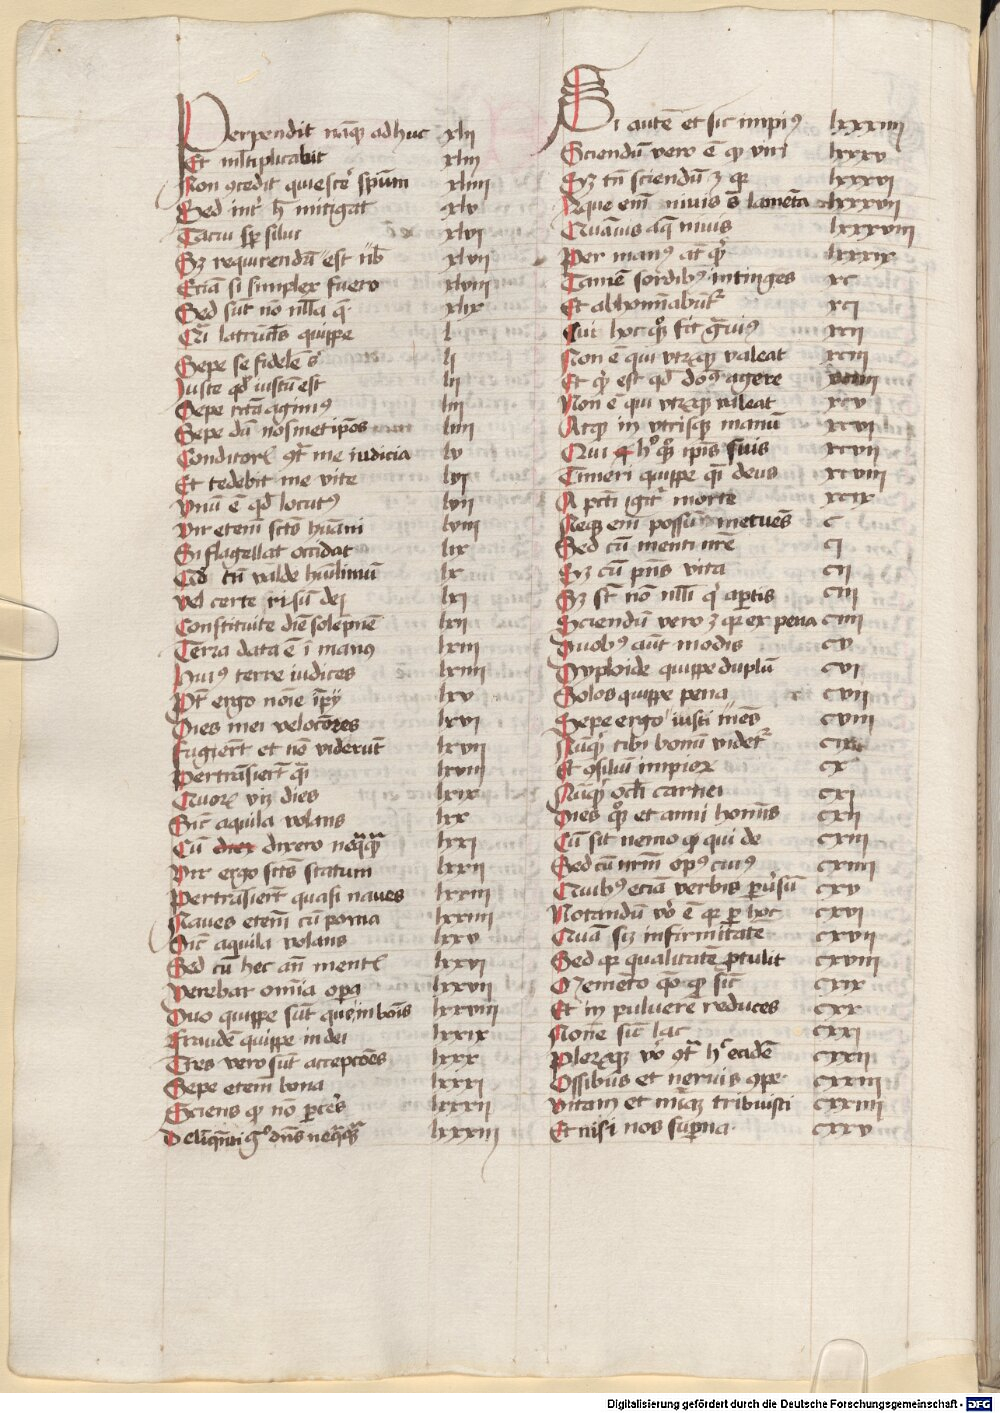 Perpendit nāq adhuc xlij
Et ml̄tiplicabit xliij
Non ꝯcedit quiescer̄ spm̄ xliiij
Sed int̄ h̄ mitigat xlv
Tactu xlvi
Sz requirendū est nb̄ xlvij
Eciā si simplex fuero xlviij
Sed sūt nō nll̄a q̄ xlix
quippe l
Sepe se fidelē s̄ lj
Juste qd̄ iustū est lij
Sepe agimꝰ liij
Sepe dū nosmetipōs liiij
Conditor̄ me iudicia lv
Et tedebit me vite lvj
Vnū ē qd̄ locutꝰ lvij
Vir etem̄ sct̄s hūani lviij
Si flagellat occidat lix
tn̄ valde lx
Vel certe risū dej lxj
Constituite diē solēpnē lxij
Terra data ē ī manꝰ lxiij
Huiꝰ terre iudices lxiiij
Pt̄ ergo noīe īpij lxv
Dies mei velociores lxvj
Fugierūt et nō viderūt lxvij
Pertrāsierūt qi lxviij
viz dies lxix
Sic̄ aquila volans lxx
Cū dixero neqq̄ lxxj
Vir ergo sct̄s statum lxxij
Pertrāsierūt quasi naues lxxiij
Naues etem̄ cū poma lxxiiij
Sic̄ aquila volans lxxv
Sed cū hec an̄ mente lxxvj
Verebar omīa opa lxxvij
Duo quippe sūt que in bonis lxxviij
Fraudē quippe in dei lxxix
Tres vero sūt accepcōes lxxx
Sepe etem̄ bona lxxxj
Sciens qꝫ nō pceris lxxxij
dn̄s neqq̄ lxxxiij
Si autē et sic impiꝰ lxxxiiij
Sciendū vero ē qꝫ viri lxxxv
tn̄ sciendū lxxxvj
Aque em̄ niuis s̄ lamēta lxxxvij
Quāuis aq̄ niuis lxxxviij
Per manꝰ at̄ lxxxix
Tamē sordibꝰ intinges xc
Et abhominabūt xcj
Cui hoc fit grauiꝰ xcij
Non ē qui vtrūqꝫ valeat xciij
Et est qd̄ agere xciiij
Non ē qui vtrūqꝫ valeat xcv
Atqꝫ in vtrisqꝫ manū xcvj
Qui suis xcvij
Timeri quippe deus xcviij
A pcti igit̄ morte xcix
Neqꝫ em̄ possūt metuēs c
Sed cū menti nr̄e cj
cū pn̄s vita cij
Sz st̄ nō nll̄i q̄ aptis ciij
Sciendū vero ꝫ qꝫ ex pena ciiij
Duobꝰ aūt modis cv
Dyploide quippe duplū cvj
Solos quippe pena cvij
Sepe ergo iusti mēs cviij
Nūq̄ tibi bonū videt̄ cix
Et ꝯsiliū impioꝝ cx
Nūq̄ ocl̄i carnei cxj
Dies et anni homīs cxij
Cū sit nemo qꝫ qui de cxiij
Sed cū nr̄m opꝰ cuiꝰ cxiiij
Quibꝰ eciā verbis cxv
Notandū vō ē qꝫ p hoc cxvj
Quā siz infirmitatē cxvij
Sed qꝫ qualitatē ptulit cxviij
Memēto qꝫ sic̄ cxix
Et in puluerē reduces cxx
Nonē sic̄ lac cxxj
Plerūqꝫ vō eciadē cxxij
Ossibus et neruis ꝯpe cxxiij
Vitam et tribuisti cxxiiij
Et nisi nos supna cxxv
Digitalisierung gefördert durch die Deutsche Forschungsgemeinschaft - DFG